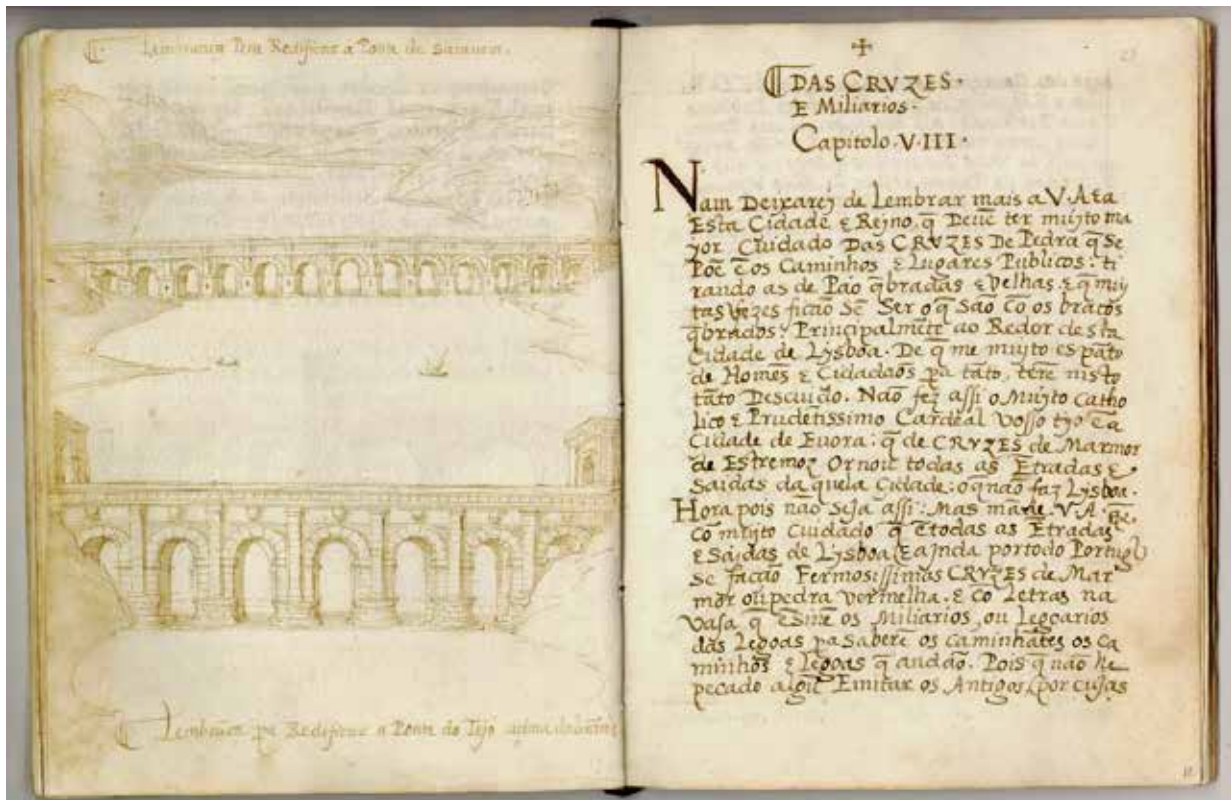 Lembrança Pera Redificar a Ponte de Sacavem.
Lembrança pa Redificar a Ponte do Tejo
✠
DAS CRVZES.
E Miliarios.
Capitolo.V.III.
Nam Deixarej de Lembrar mais a V. Ata
Esta Cidade e Reyno, q̃ Deue ter muyto ma
yor Cuidado Das CRVZES De Pedra q̃ Se
Põe ẽ os Caminhos e Lugares Publicos: ti
rando as de Pao q̃bradas e Velhas, e q̃ muy
tas Vezes ficão Sẽ Ser o q̃ São Cõ os braços
q̃brados, Principalmẽte ao Redor desta
Cidade de Lysboa. De q̃ me muyto espãto
de Homẽs e Cidadaõs pa tãto, terẽ nisto
tãto Descuido. Não fez assi o Muyto Catho
lico e Prudẽtissimo Cardeal Vosso tyo ẽ a
Cidade de Euora: q̃ de CRVZES de Marmor
de Estremoz Ornou todas as Ẽtradas e
Saidas daquela Cidade: o q̃ não faz Lysboa.
Hora pois não Seja assi: Mas mãde V.A.
Cõ muyto Cuidado q̃ ẽ todas as Ẽtradas
e Saidas de Lysboa, E ajnda por todo Portugl
Se facão Fermosissimas CRVZES de Mar
mor ou pedra Vermelha. e Cõ Letras na
Vasa q̃ ẽsinẽ os Miliarios, ou Legoarios
das Legoas pa Saberẽ os caminhãtes os ca
minhos e Legoas q̃ andão. Pois q̃ não he
pecado algũ Emitar os Antigos, por cujas